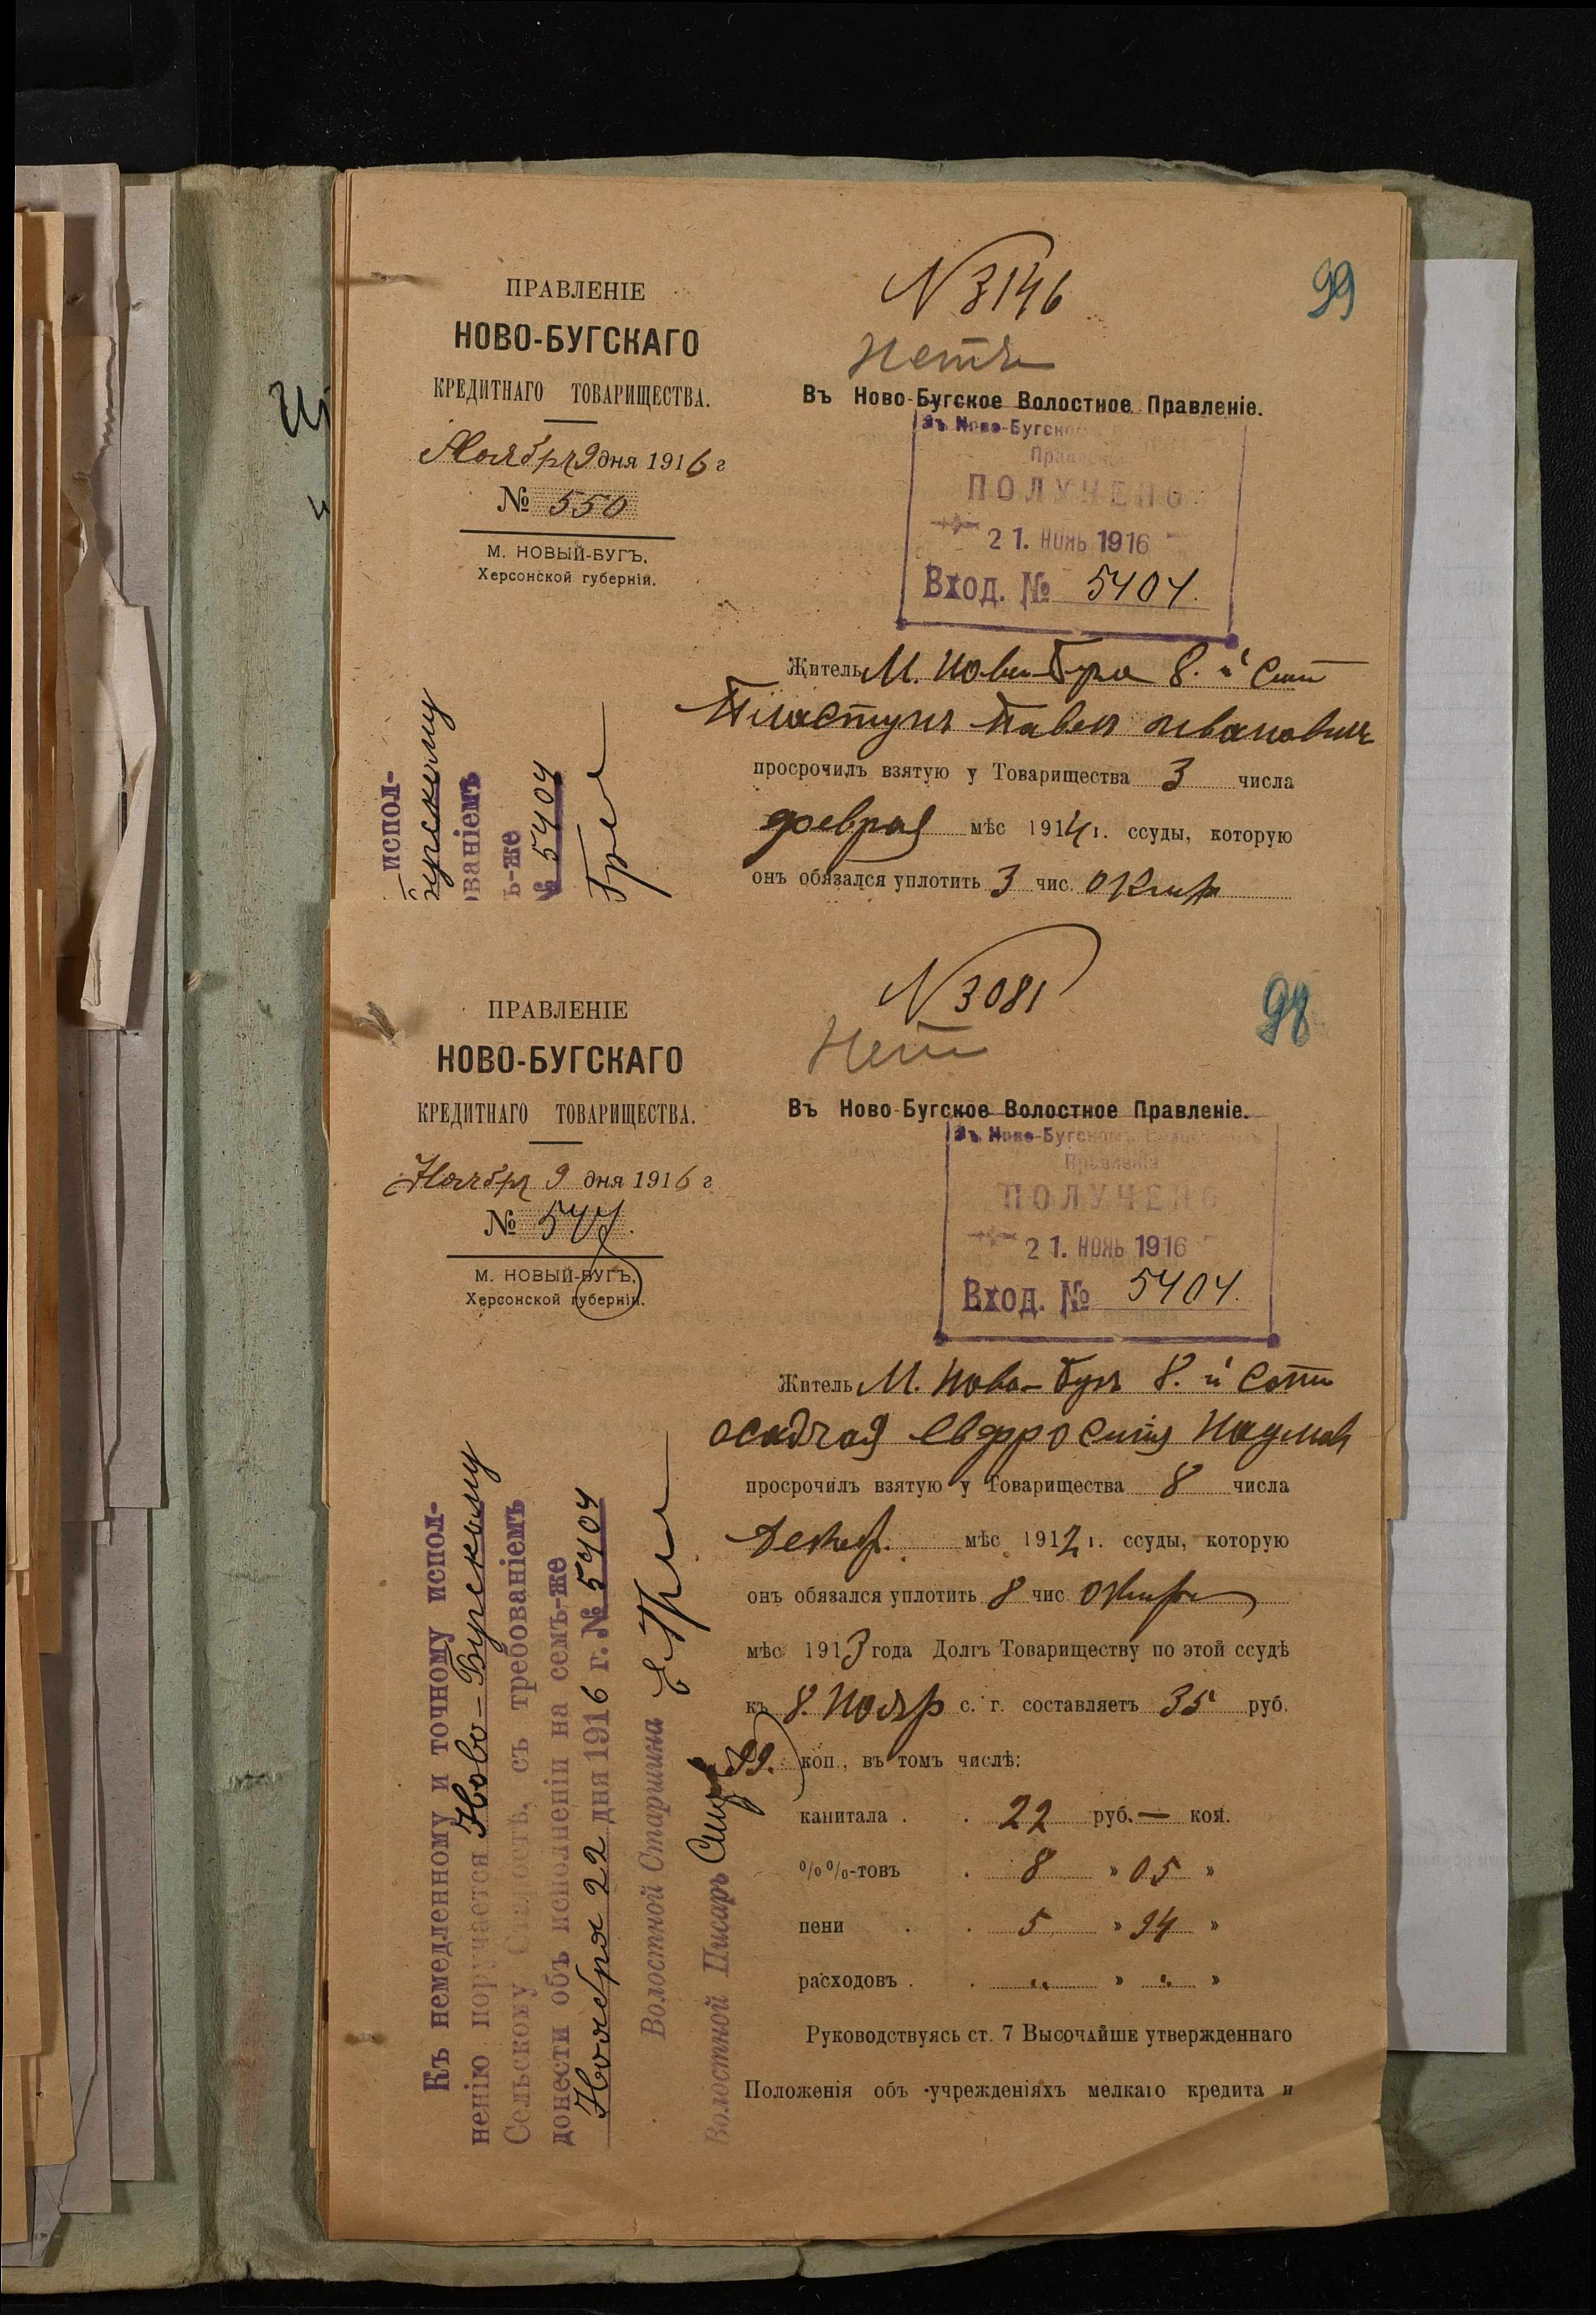 99
N 3146
Нетъ
ПРАВЛЕНІЕ
НОВО-БУГСКАГО
КРЕДИТНАГО ТОВАРИЩЕСТВА.
Ноября 9 дня 1916 г
№ 550
М. НОВЫЙ-БУГЪ,
Херсонской губерніи.
Въ Ново-Бугское Волостное Правленіе.
Въ Ново-Бугск
Пра
ПОЛУЧЕНО
21. НОЯБ 1916
Вход. № 5404.
Житель М. Ново-Буга 8.й Сот
Пластунъ Павел Ивановичъ
просрочилъ взятую у Товарищества 3 числа
феврал мѣс 1914 г. ссуды, которую
онъ обязался уплотить 3 чис. Октяр
испол-
Бугскому
ованіемъ
ъ-же
№ 5404
98
N 3081
Нет
ПРАВЛЕНІЕ
НОВО-БУГСКАГО
КРЕДИТНАГО ТОВАРИЩЕСТВА.
Ноябр 9 дня 1916 г
№ 547.
М. НОВЫЙ-БУГЪ,
Херсонской губерніи.
Въ Ново-Бугское Волостное Правленіе.
Въ Ново-Бугском
Правленіи
ПОЛУЧЕНО
21. НОЯБ 1916
Вход. № 5404.
Житель М. Ново-Буга 8.й Сотн
Осадчая Евфросинія Наумов
просрочилъ взятую у Товарищества 8 числа
Декаб. мѣс 1912 г. ссуды, которую
онъ обязался уплотить 8 чис. Октяр
мѣс 1913 года Долгъ Товариществу по этой ссудѣ
къ 8. Нояр с. г. составляетъ 35 руб.
99. коп., въ томъ числѣ:
капитала . . 22 руб. — коп.
%%-товъ . 8 " 05 "
пени . . 5 " 94 "
расходовъ . . " " " "
Руководствуясь ст. 7 Высочайше утвержденнаго
Положенія объ учрежденіяхъ мелкаго кредита и
Къ немедленному и точному испол-
ненію поручается Ново-Бугскому
Сельскому Старостѣ, съ требованіемъ
донести объ исполненіи на семъ-же
Ноября 22 дня 1916 г. № 5404
Волостной Старшина
Волостной Писарь